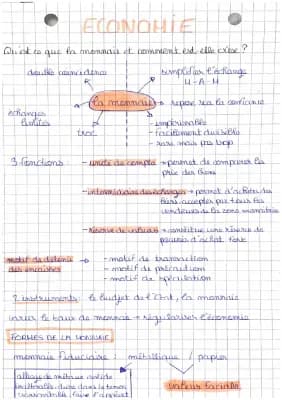 ECONOMIE
Qu'est ce que la monnaie et comment est elle crée ?
double coincidence
simplifier l'échange
M - A - M
la monnaie
repose sur la confiance
échanges
limités
troc
- impérissable
- facilement divisible
- rare mais pas trop
3 fonctions : - unité de compte → permet de comparer la
prix des biens
- intermédiaire des échanges → permet d'acheter des
biens acceptés par tous les
vendeurs de la zone monétaire
- réserve de valeurs → constitue une réserve de
pouvoir d'achat
motif de détenir
des encaisses
- motif de transaction
- motif de précaution
- motif de spéculation
2 instruments : le budget de l'Etat, la monnaie
le taux de monnaie → régulariser l'économie
FORMES DE LA MONNAIE
monnaie fiduciaire : métallique / papier
alliage de métaux
valeur faciale